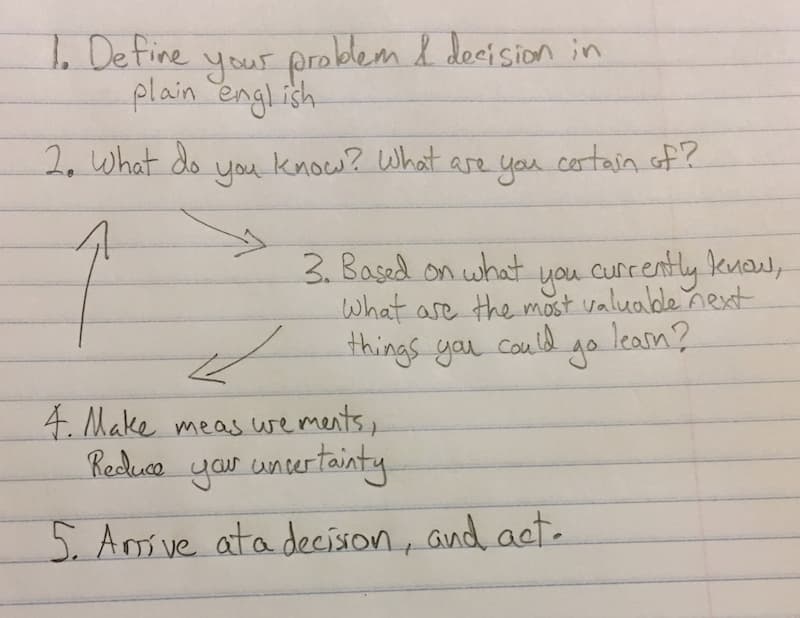 1. Define your problem & decision in
plain english
2. What do you know? What are you certain of?
3. Based on what you currently know,
What are the most valuable next
things you could go learn?
4. Make measurements,
Reduce your uncertainty
5. Arrive at a decision, and act.